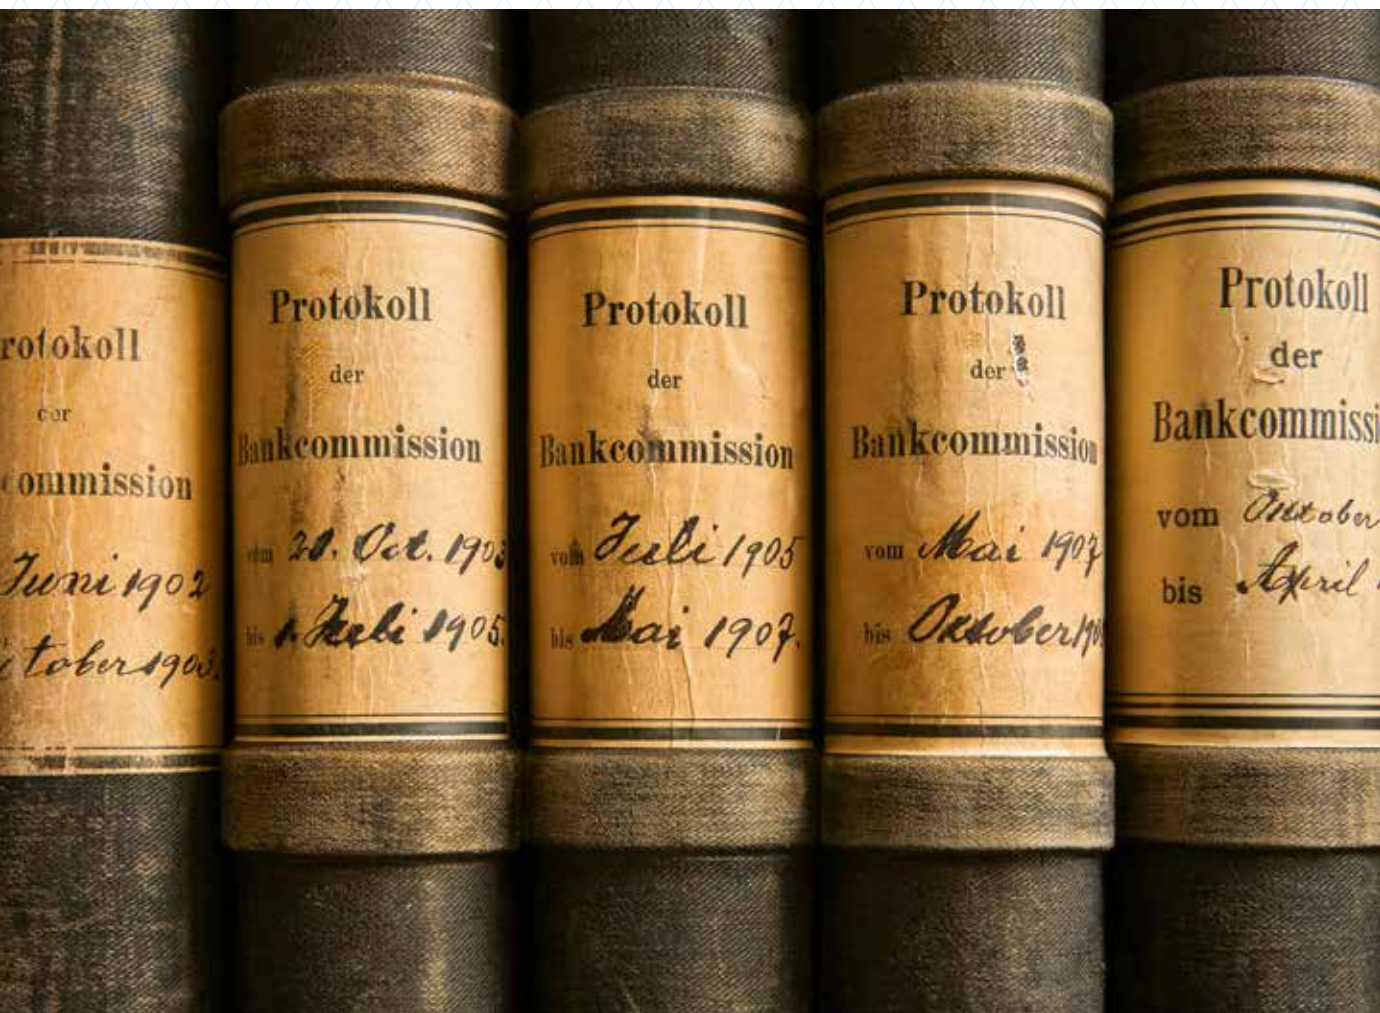 rotokoll
der
commission
Juni 1902
ctober 1903.
Protokoll
der
Bankcommission
vom 20. Oct. 1903
bis 1. Juli 1905.
Protokoll
der
Bankcommission
vom Juli 1905
bis Mai 1907.
Protokoll
der
Bankcommission
vom Mai 1907
bis Oktober
Protokoll
der
Bankcommissi
vom October
bis April